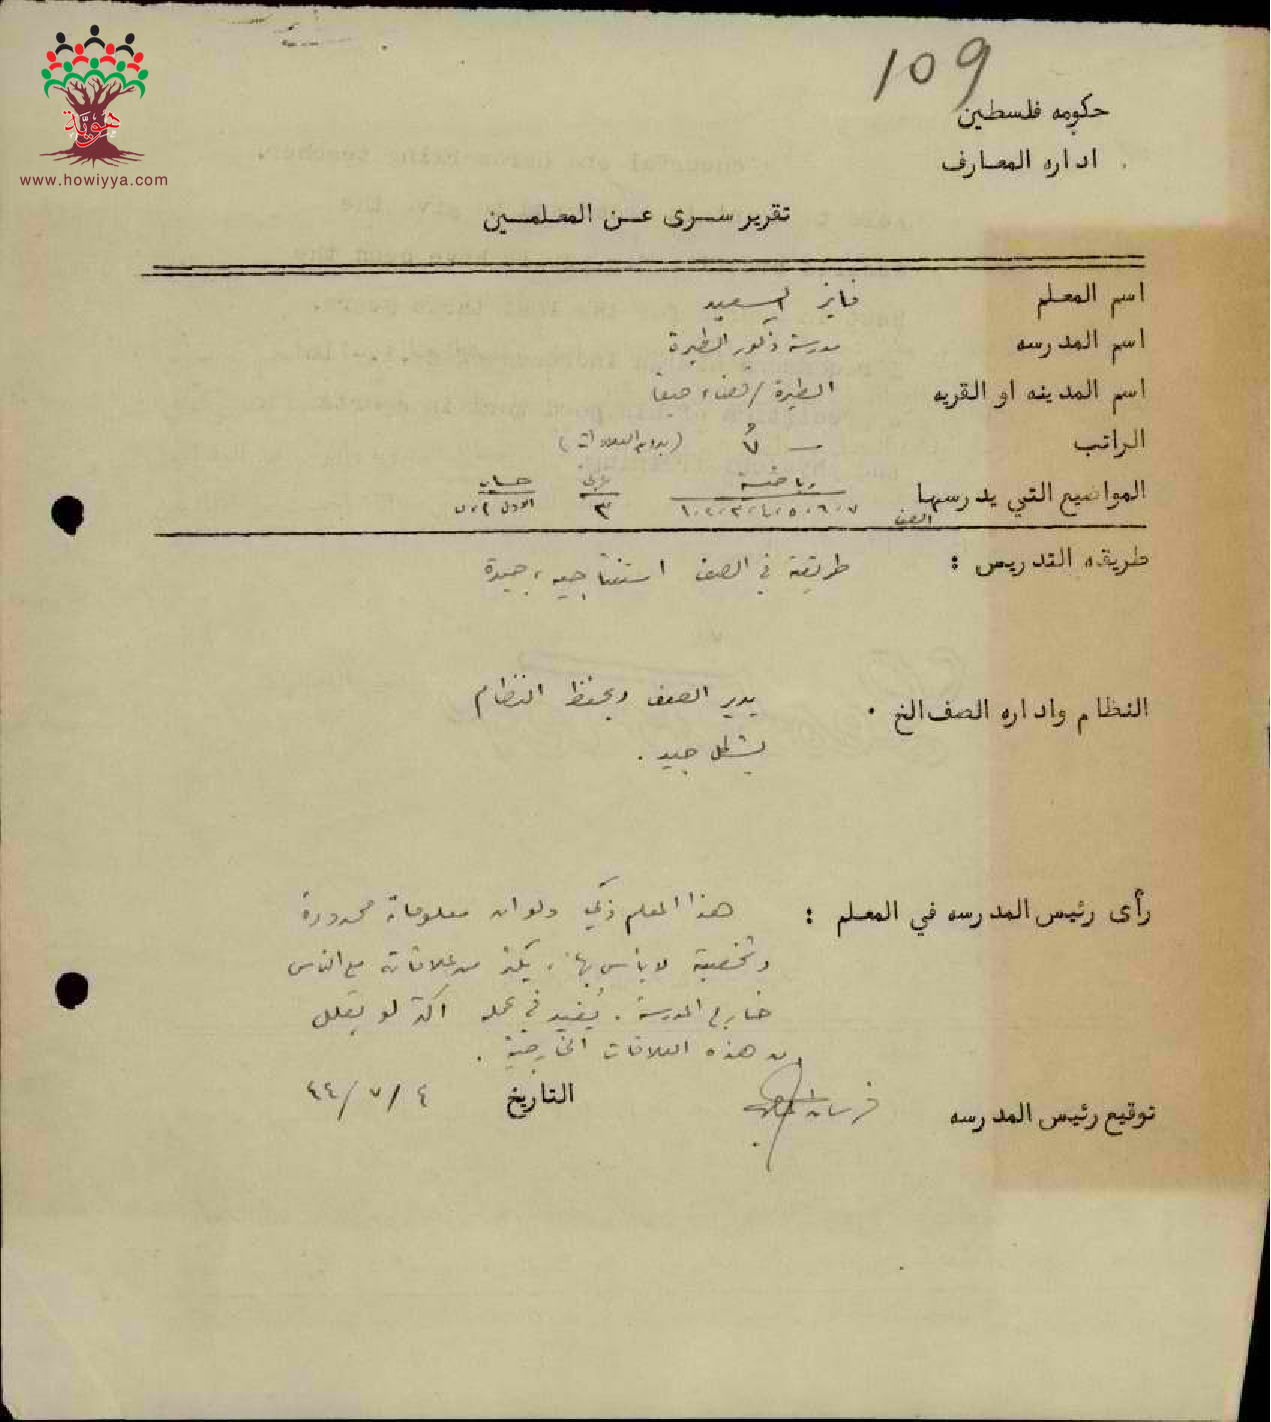 109
هوية
www.howiyya.com
حكومه فلسطين
اداره المعارف
تقرير سرى عن المعلمين
اسم المعلم فايز السعيد
اسم المدرسه مدرسة ذكور الطيرة
اسم المدينه او القريه الطيرة / قضاء حيفا
الراتب (بدون العلاوات)
المواضيع التي يدرسها رياضة عربي حساب
الصف ٧،٦،٥،٤،٣،٢،١ ٣ الاول
طريقه التدريس : طريقة في الصف استنتاجيه، جيدة
النظام واداره الصف الخ . يدير الصف ويحفظ النظام
بشكل جيد .
رأى رئيس المدرسه في المعلم : هذا المعلم ذكي ولو ان معلوماته محدودة
وشخصيته لا بأس بها، يكثر من علاقاته مع الناس
خارج المدرسة . يُفيد في عمله اكثر لو يقلل
من هذه العلاقات الخارجية .
توقيع رئيس المدرسه التاريخ ٤ / ٧ / ٤٤